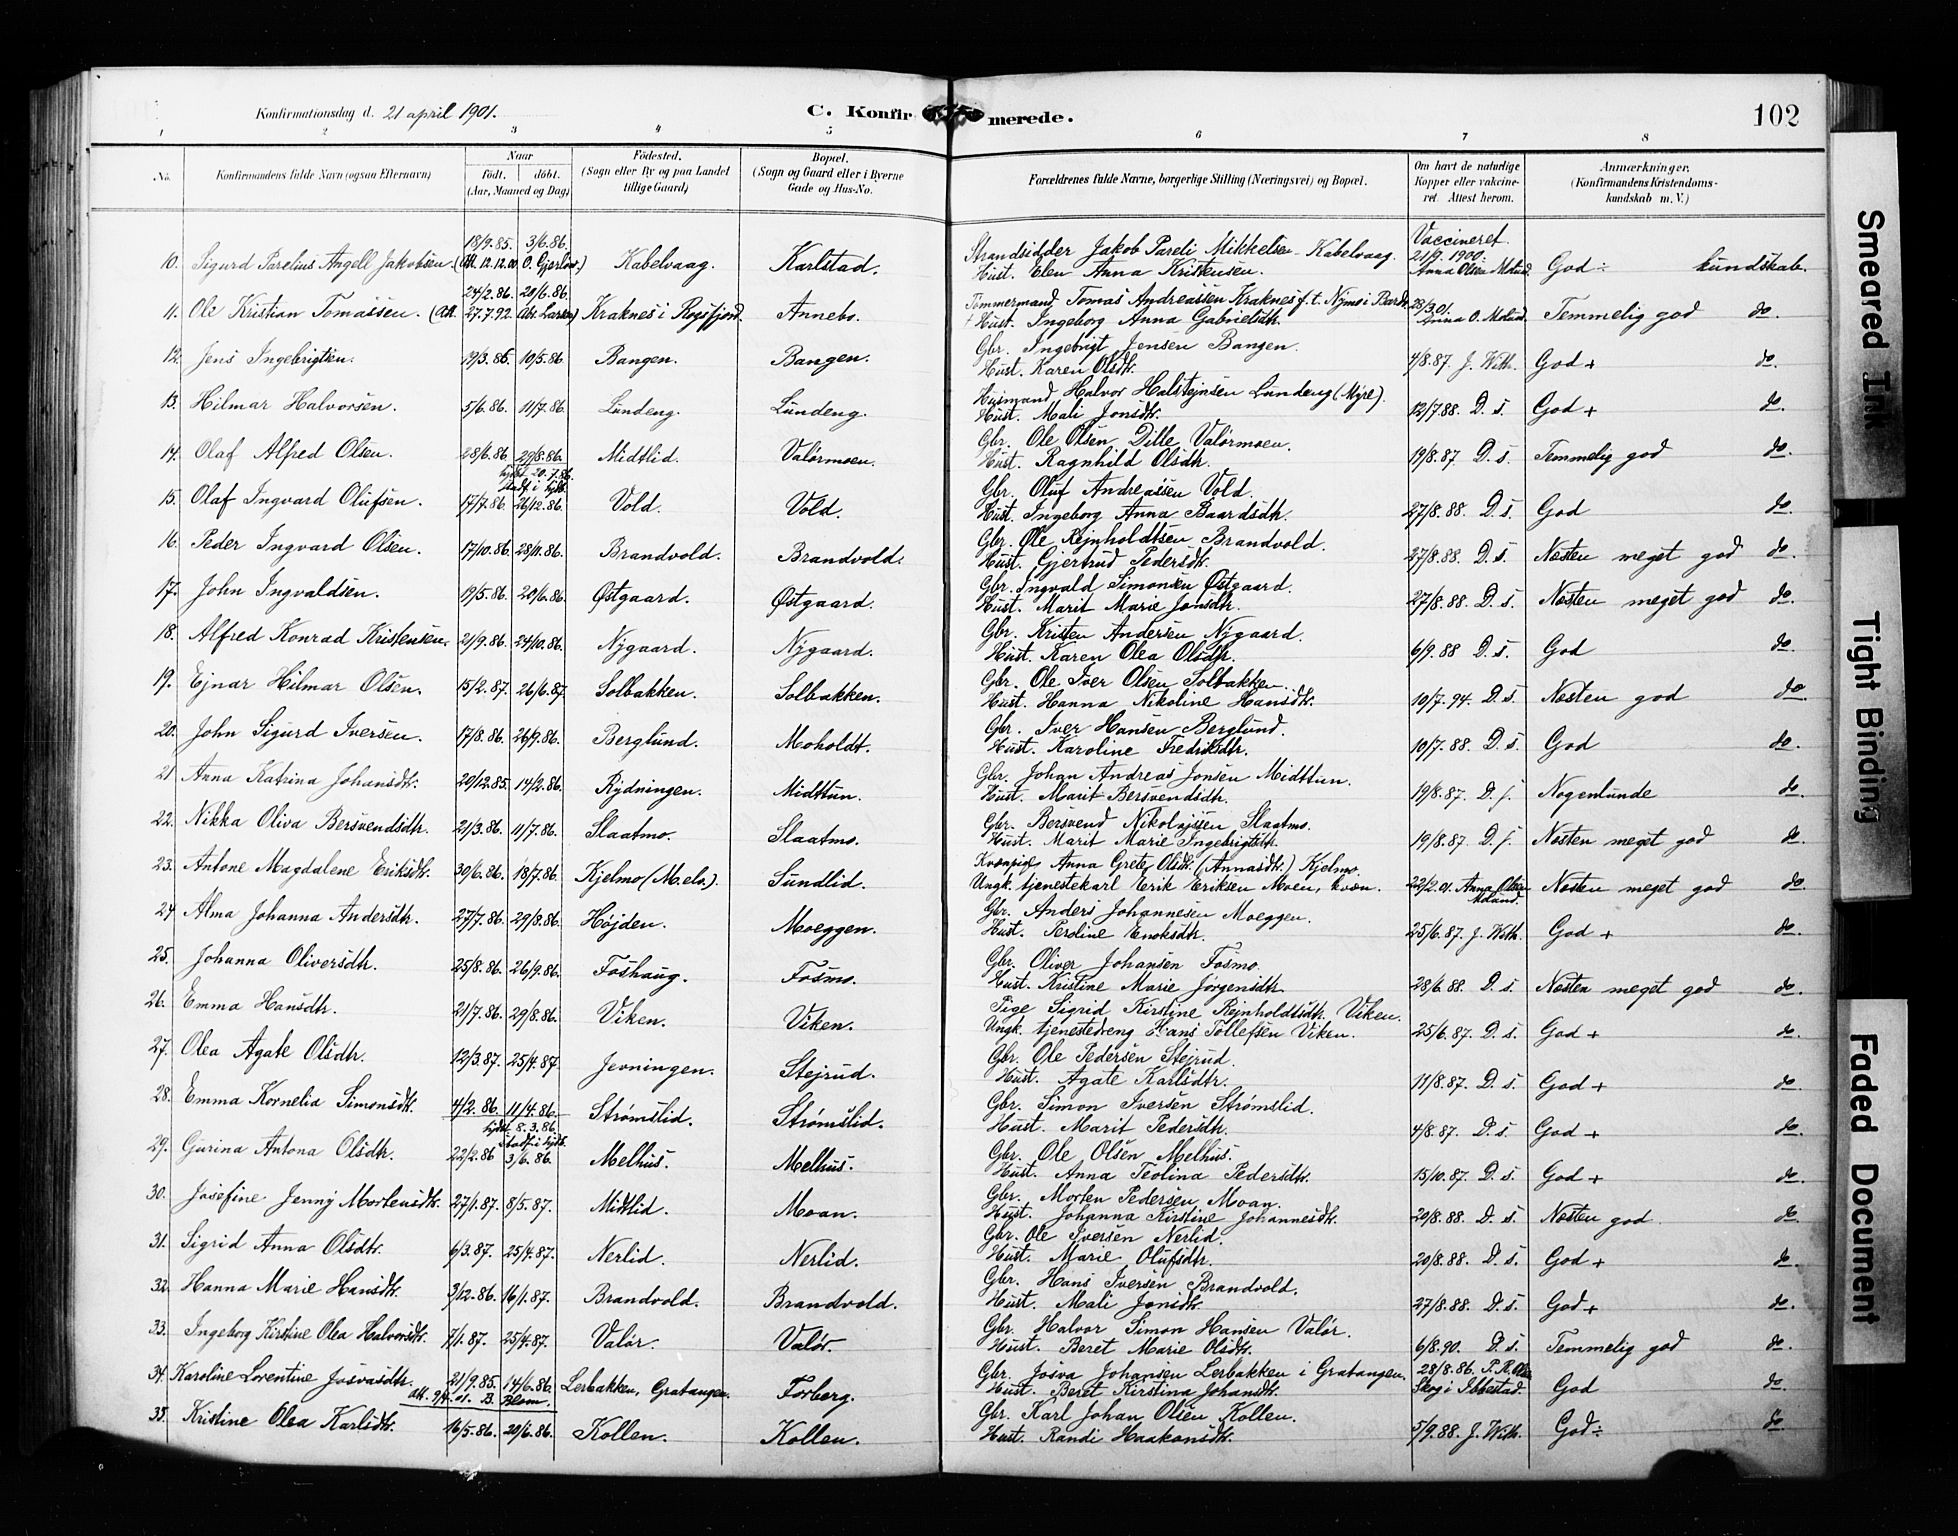 Konfirmationsdag d. 21 april 1901.
C. Konfirmerede.
102
1 2 3 4 5 6 7 8
No.
Konfirmandens fulde Navn (ogsaa Efternavn)
Naar
födt. döbt.
(Aar, Maaned og Dag)
Födested.
(Sogn eller By og paa Landet
tillige Gaard)
Bopæl.
(Sogn og Gaard eller i Byerne
Gade og Hus-No.
Forældrenes fulde Navne, borgerlige Stilling (Næringsvei) og Bopæl.
Om havt de naturlige
Kopper eller vakcine-
ret. Attest herom.
Anmærkninger.
(Konfirmandens Kristendoms-
kundskab m. V.)
10. Sigurd Parelius Angell Jakobsen. 18/9.85. 3/6.86. (Att. 12.12.00 O. Gjerløw.) Kabelvaag. Karlstad. Strandsidder Jakob Pareli Mikkelsen Kabelvaag.
Hust. Elen Anna Kristensen. Vaccineret 21/9. 1900. Anna Olsen Moland. God ÷ kundskab.
11. Ole Kristian Tomassen. 24/2.86. 20/6.86. (Att. 27.7.92. Abr. Larsen) Kraknes i Rogsfjord. Annebo. Tømmermand Tomas Andreassen Kraknes f.t. Nymo i Bardo
+ Hust. Ingeborg Anna Gabrielsdtr. 28/3.01. Anna O. Moland. Temmelig god do.
12. Jens Ingebrigtsen. 29/3.86. 10/5.86 Bangen. Bangen. Gbr. Ingebrigt Jensen Bangen.
Hust. Karen Olsdtr. 4/8.87. J. Weth. God + do
13. Hilmar Halvorsen. 5/6.86. 11/7.86. Lundeng. Lundeng. Husmand Halvor Halstejnsen Lundeng (Myre).
Hust. Mali Jonsdtr. 12/7.88. D. s. God + do.
14. Olaf Alfred Olsen. 28/6.86. 29/8.86. Midtlid. Valørmoen. Gbr. Ole Olsen Dille Valørmoen.
Hust. Ragnhild Olsdtr. 19/8.87. D. s. Temmelig god do.
hjdt. 20.7.86.
stadf. i kjdt.
15. Olaf Ingvard Olufsen. 17/7.86. 26/12.86. Vold. Vold. Gbr. Oluf Andreassen Vold.
Hust. Ingeborg Anna Baardsdtr. 27/8.88. D. s. God do.
16. Peder Ingvard Olsen. 17/10.86. 28/11.86. Brandvold. Brandvold. Gbr. Ole Rejnholdtsen Brandvold.
Hust. Gjertrud Pedersdtr. 27/8.88. D. s. Næsten meget god do.
17. John Ingvaldsen. 19/5.86. 20/6.86. Østgaard. Østgaard. Gbr. Ingvald Simonsen Østgaard.
Hust. Marit Marie Jonsdtr. 27/8.88. D. s. Næsten meget god do.
18. Alfred Konrad Kristensen. 21/9.86. 24/10.86. Nygaard. Nygaard. Gbr. Kristen Andersen Nygaard.
Hust. Karen Olea Olsdtr. 6/9.88 D. s. God do.
19. Ejnar Hilmar Olsen. 15/2.87. 26/6.87. Solbakken. Solbakken. Gbr. Ole Iver Olsen Solbakken.
Hust. Hanna Nikoline Hansdtr. 10/7.94. D. s. Næsten god do.
20. John Sigurd Iversen. 17/8.86. 26/9.86. Berglund. Moholdt. Gbr. Iver Hansen Berglund.
Hust. Karoline Fredriksdtr. 10/7.88. D. s. God do.
21. Anna Katrina Johansdtr. 20/12.85. 14/2.86. Rydningen. Midttun. Gbr. Johan Andreas Jonsen Midttun.
Hust. Marit Bersvendsdtr. 19/8.87. D. s. Nogenlunde do.
22. Nikka Oliva Bersvendsdtr. 21/3.86. 11/7.86. Slaatmo. Slaatmo. Gbr. Bersvend Nikolajssen Slaatmo.
Hust. Marit Marie Ingebrigtsdtr. 19/8.87. D. s. Næsten meget god do.
23. Antone Magdalene Eriksdtr. 30/6.86. 18/7.86. Kjelmo (M.elv.). Sundlid. Kvænpige Anna Grete Olsdtr. (Annasdtr.) Kjelmo.
Ungk. tjenestekarl Erik Eriksen Moen, kvæn. 22/2.01. Anna Olsen Moland. Næsten meget god do.
24. Alma Johanna Andersdtr. 27/7.86. 29/8.86. Højden. Moeggen. Gbr. Anders Johannesen Moeggen.
Hust. Peroline Enoksdtr. 25/6.87. J. Weth. God + do.
25. Johanna Oliversdtr. 25/8.86. 26/9.86. Foshaug. Fosmo. Gbr. Oliver Johansen Fosmo.
Hust. Kristine Marie Jørgensdtr. 28/6.88. D. s. Næsten meget god do.
26. Emma Hansdtr. 21/7.86. 29/8.86. Viken. Viken. Pige Sigrid Kirstine Rejnholdtsdtr. Viken.
Ungk. tjenestedreng Hans Tollefsen Viken. 25/6.87. D. s. God + do.
27. Olea Agate Olsdtr. 12/3.87. 25/4.87. Jevningen. Stejrud. Gbr. Ole Pedersen Stejrud.
Hust. Agate Karlsdtr. 11/8.87. D. s. God + do.
28. Emma Kornelia Simonsdtr. 4/2.86. 11/4.86. Strømslid. Strømslid. Gbr. Simon Iversen Strømslid.
Hust. Marit Pedersdtr. 4/8.87. D. s. God + do.
hjdt. 8.3.86.
stadf. i kjdt.
29. Gurina Antona Olsdtr. 22/2.86 3/6.86. Melhus. Melhus. Gbr. Ole Olsen Melhus.
Hust. Anna Teolina Pedersdtr. 15/10.87. D. s. God + do.
30. Josefine Jenny Mortensdtr. 27/1.87. 8/5.87. Midtlid. Moan. Gbr. Morten Pedersen Moan.
Hust. Johanna Kirstine Johannesdtr. 20/8.88. D. s. Næsten god. do.
31. Sigrid Anna Olsdtr. 6/3.87. 25/4.87. Nerlid. Nerlid. Gbr. Ole Iversen Nerlid.
Hust. Marie Olufsdtr. 20/8.88. D. s. God + do.
32. Hanna Marie Hansdtr. 3/12.86. 16/1.87. Brandvold. Brandvold. Gbr. Hans Iversen Brandvold.
Hust. Mali Jonsdtr. 27/8.88. D. s. God + do.
33. Ingeborg Kirstine Olea Halvorsdtr. 7/1.87. 25/4.87. Valør. Valør. Gbr. Halvor Simon Hansen Valør.
Hust. Beret Marie Olsdtr. 6/8.90. D. s. Temmelig god do.
34. Karoline Lorentine Josvasdtr. 21/9.85. 14/6.86. Lerbakken, Gratangen. Forberg. Gbr. Josva Johansen Lerbakken i Gratangen.
att. 9/4.01. B. Blom. Hust. Beret Kirstina Johansdtr. 28/8.86. Skog i Ibbestad. God do.
35. Kristine Olea Karlsdtr. 16/5.86. 20/6.86. Kollen. Kollen. Gbr. Karl Johan Olsen Kollen.
Hust. Randi Haakonsdtr. 5/9.88. J. Weth. God ÷ do.
Smeared Ink
Tight Binding
Faded Document